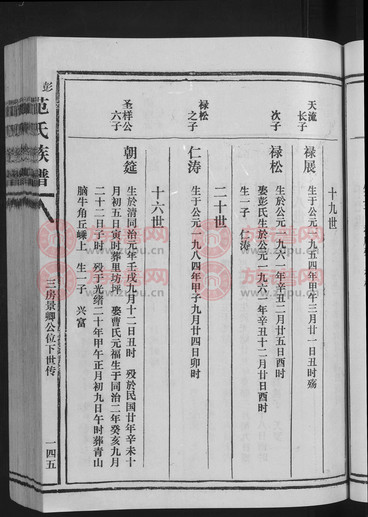 十九世
天流长子
禄展 生于公元一九五四年甲午三月廿一日丑时殇
次子
禄松 生於公元一九六一年辛丑二月廿五日酉时
娶彭氏生於公元一九六一年辛丑十二月廿日酉时
生一子 仁涛
二十世
禄松之子
仁涛 生于公元一九八四年甲子九月廿四日卯时
十六世
圣样公六子
朝筵 生於清同治元年壬戌九月十二日丑时 殁於民国廿年辛未十
月初五日寅时葬里坊坪 娶曹氏元福生于同治二年癸亥九月
二十二日子时 殁于光绪二十年甲午正月初九日午时葬青山
脑牛角丘嵊上 生一子 兴富
彭
范氏族谱
三房景卿公位下世传
一四五
族谱网
www.zupu.cn